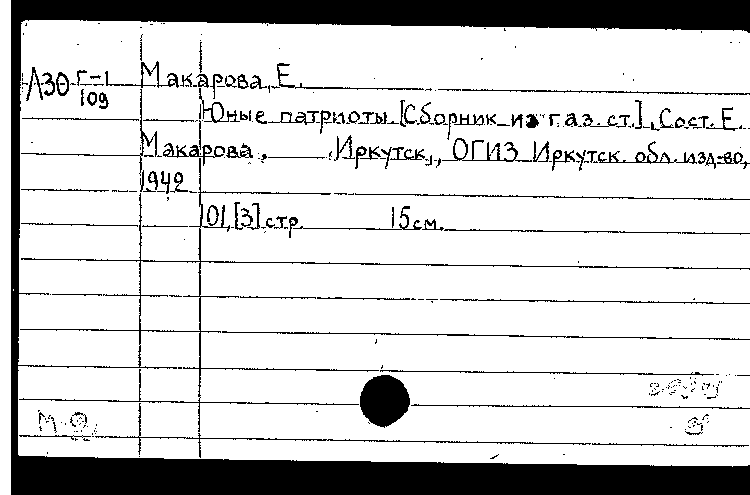 Л30 Г-1
109
Макарова, Е.
Юные патриоты. [Сборник из газ. ст.]. Сост. Е.
Макарова. Иркутск, ОГИЗ Иркутск. обл. изд-во,
1942
101, [3] стр. 15 см.